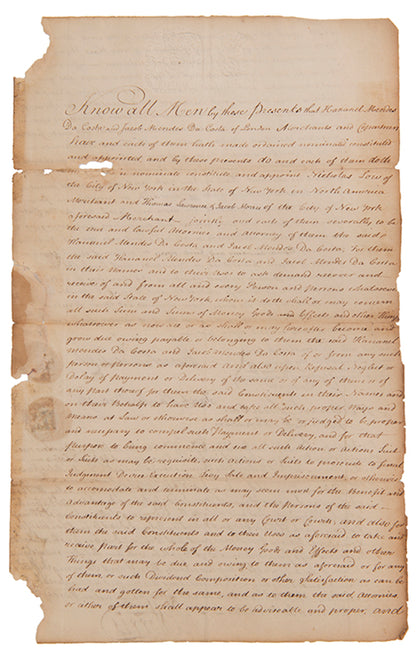 Know all Men by these Presents that Hananel Mendes
Da Costa and Jacob Mendes Da Costa of London Merchants and Copartners
have and each of them hath made ordained nominated constituted
and appointed and by these presents do and each of them doth
nominate constitute and appoint Nicholas Low of
the City of New York in the State of New York in North America
Merchant and Thomas Lawrence & Jacob of the City of New York
aforesaid Merchant jointly and each of them severally to be
the true and lawful Attornies and Attorney of them the said
Hananel Mendes Da Costa and Jacob Mendes Da Costa, for them
the said Hananel Mendes Da Costa and Jacob Mendes Da Costa
in their Names and to their Uses to ask demand recover and
receive of and from all and every Person and Persons whatsoever
in the said State of New York whom it doth shall or may concern
all such Sum and Sums of Money Goods and Effects and other Things
whatsoever as now are or as shall or may hereafter become and
grow due owing payable or belonging to them the said Hananel
Mendes Da Costa and Jacob Mendes Da Costa of or from any such
person or persons as aforesaid And also upon Refusal Neglect or
Delay of Payment or Delivery of the same or of any of them or of
any part thereof for them the said Constituents in their Names and
on their Behalfs to have Use and take all such proper Ways and
Means as Law or otherwise shall or may be adjudged to be proper
and necessary to compel such Payment or Delivery, and for that
purpose to bring commence and all such Action or Actions Suit
or Suits as may be requisite such actions or Suits to prosecute to final
Judgment Decree Execution Levy Sale and Imprisonment, or otherwise
to accomodate and terminate as may seem most for the Benefit and
advantage of the said Constituents, and the Persons of the said
Constituents to represent in all or any Court or Courts; and also for
them the said Constituents and to their Uses as aforesaid to take and
receive part for the whole of the Money Goods and Effects and other
Things that may be due and owing to them as aforesaid or for any
of them, or such Dividend Composition or other Satisfaction as can be
had and gotten for the same, and as to them the said Attornies
or either of them shall appear to be adviseable and proper, and